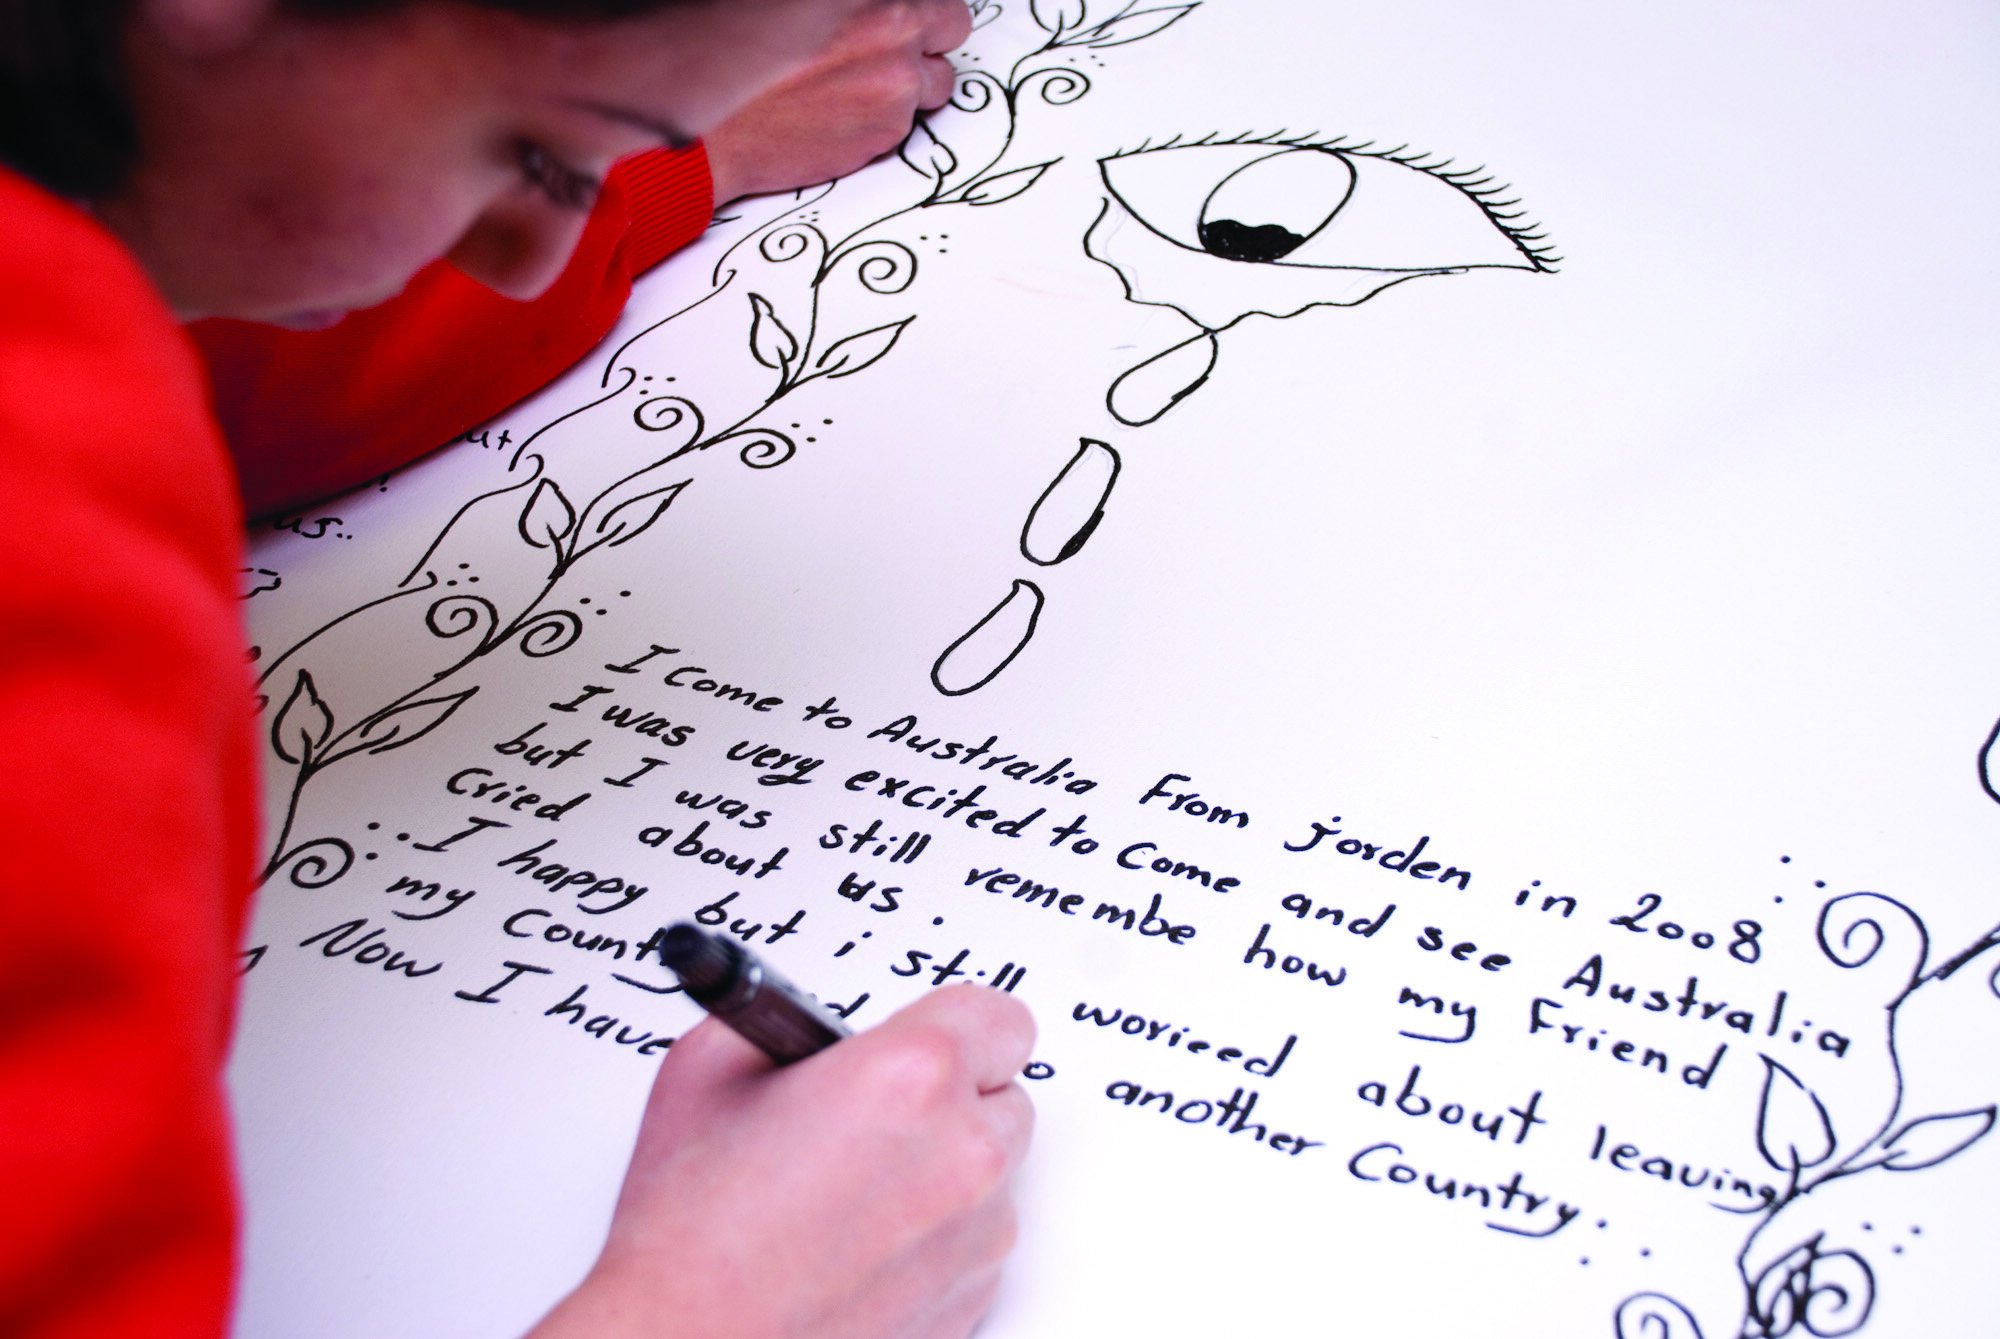 I come to Australia From jorden in 2008
I was very excited to come and see Australia
but I was still remembe how my Friend
cried about us.
I happy but i still worieed about leaving
my another Country.
Now I have